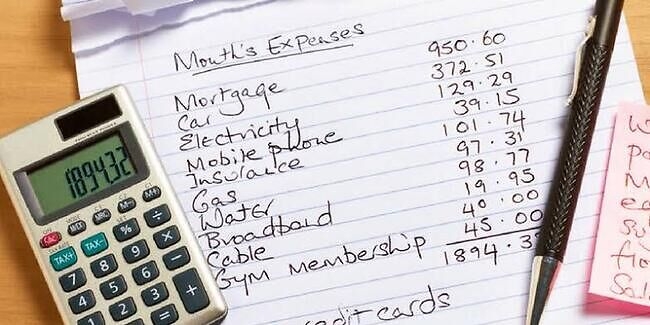 Month's Expenses
Mortgage 950.60
Car 372.51
Electricity 129.29
Mobile phone 39.15
Insurance 101.74
Gas 97.31
Water 98.77
Broadband 19.95
Cable 40.00
Gym membership 45.00
1894.3
credit cards
1894.32
MRC M- M+
TAX+ TAX- % ÷
7 8 9 ×
4 5 6 -
1 2 3 +